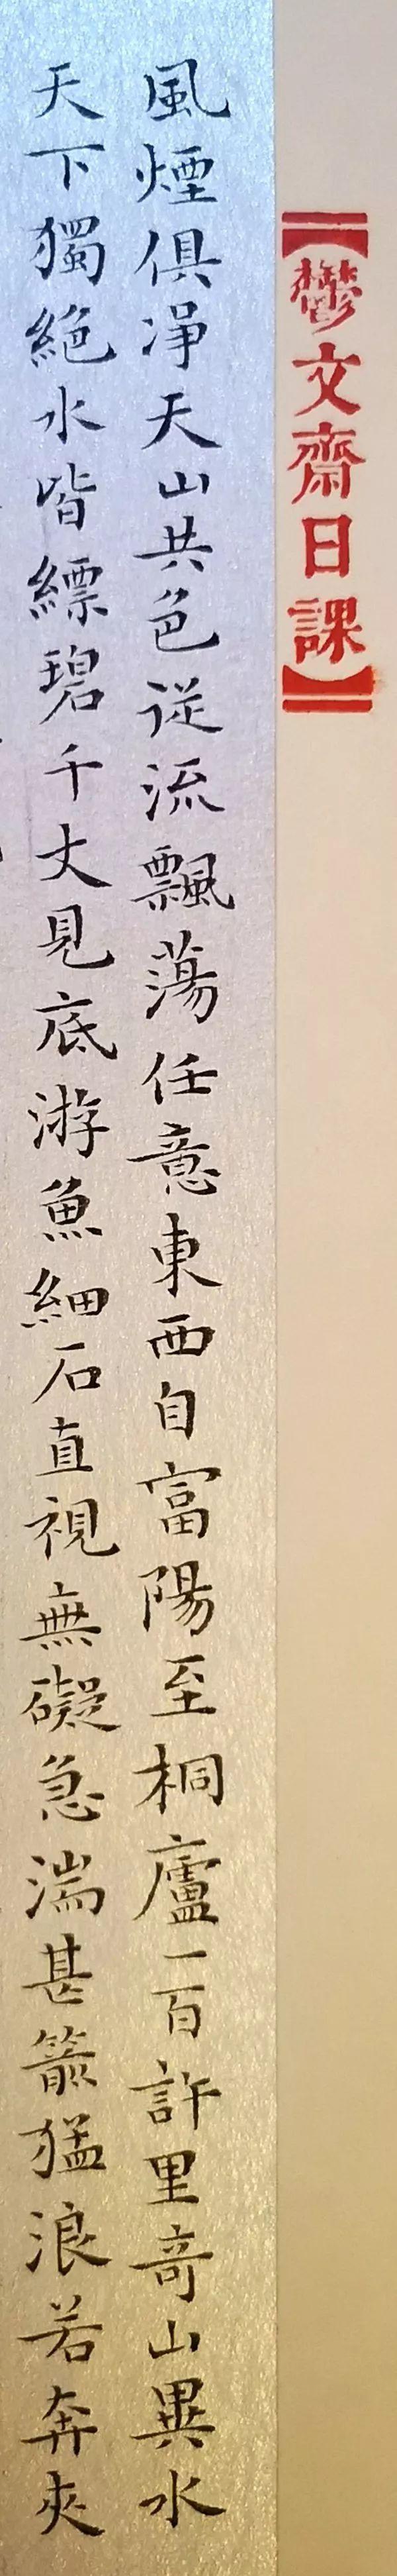 【鬱文齋日課】
風煙俱凈天山共色從流飄蕩任意東西自富陽至桐廬一百許里奇山異水
天下獨絕水皆縹碧千丈見底游魚細石直視無礙急湍甚箭猛浪若奔夾